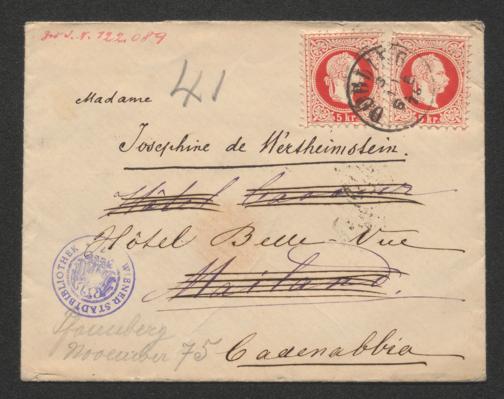 zu I. N. 122.089
41
5 kr. 5 kr.
Madame
Josephine de Wertheimstein.
Hôtel
Hôtel Belle Vue
Mailand.
WIENER STADTBIBLIOTHEK
November 75
Cadenabbia